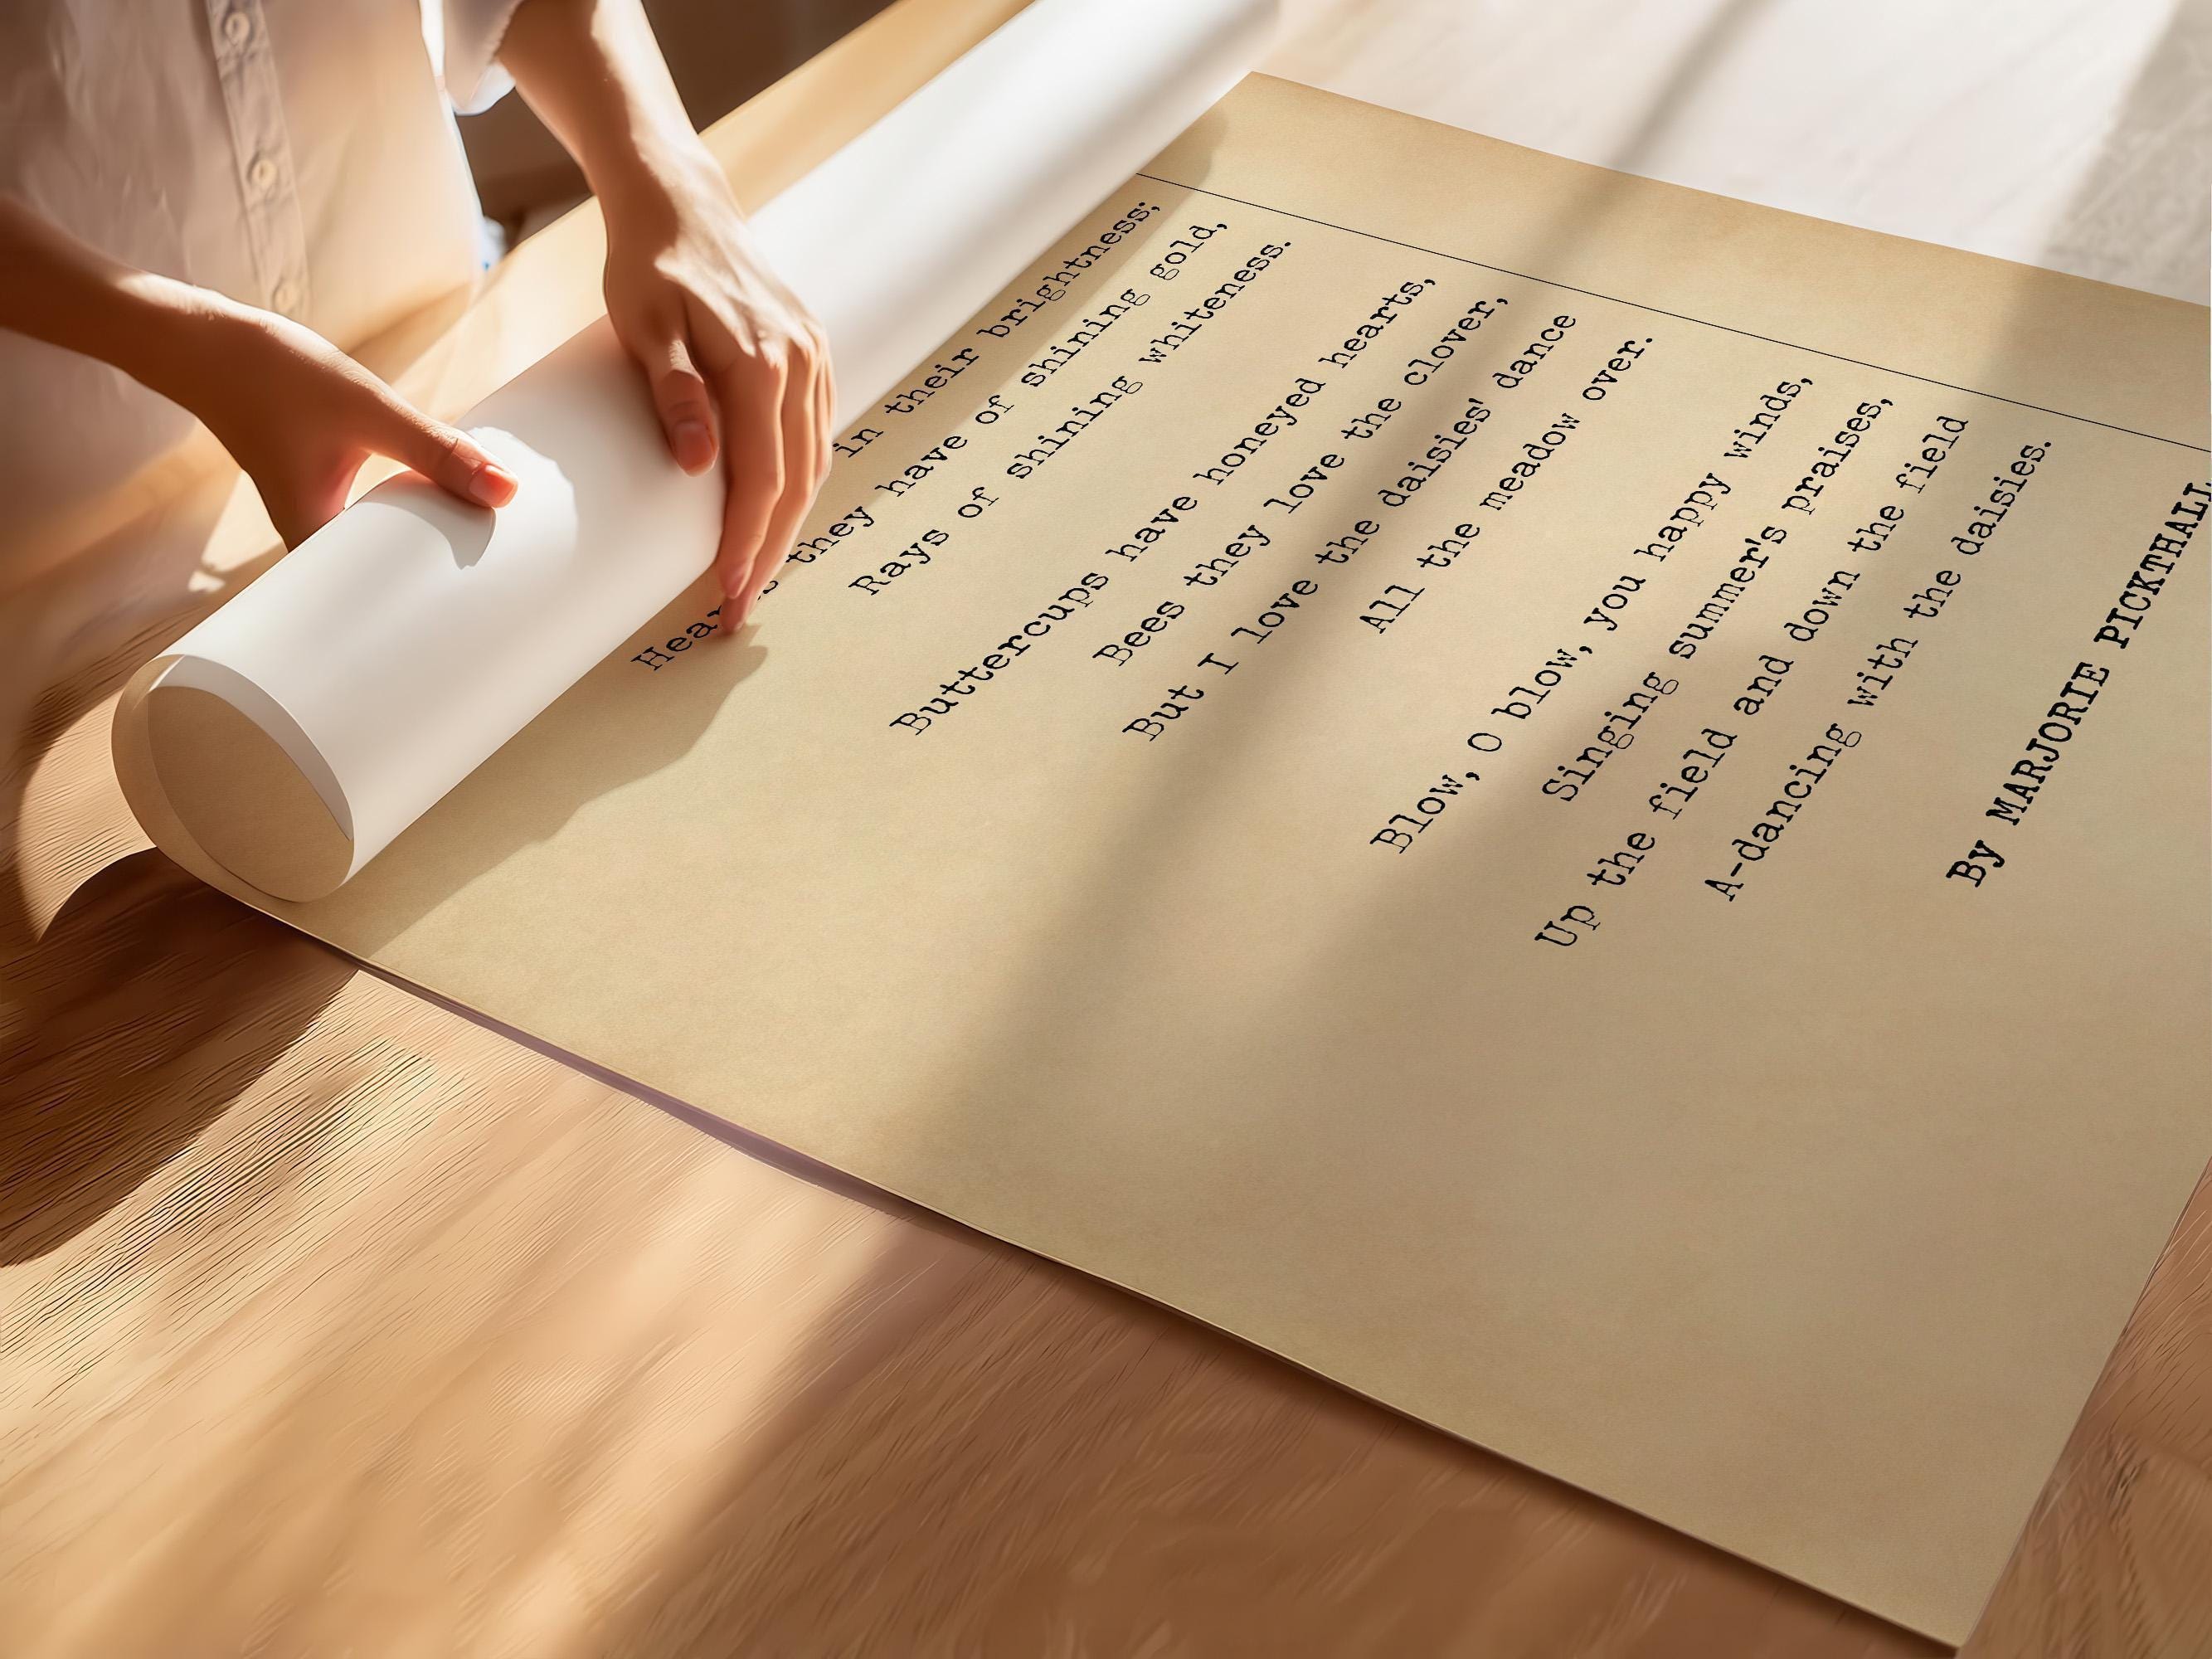 in their brightness;
they have of shining gold,
Rays of shining whiteness.
Buttercups have honeyed hearts,
Bees they love the clover,
But I love the daisies' dance
All the meadow over.
Blow, O blow, you happy winds,
Singing summer's praises,
Up the field and down the field
A-dancing with the daisies.
By MARJORIE PICKTHALL